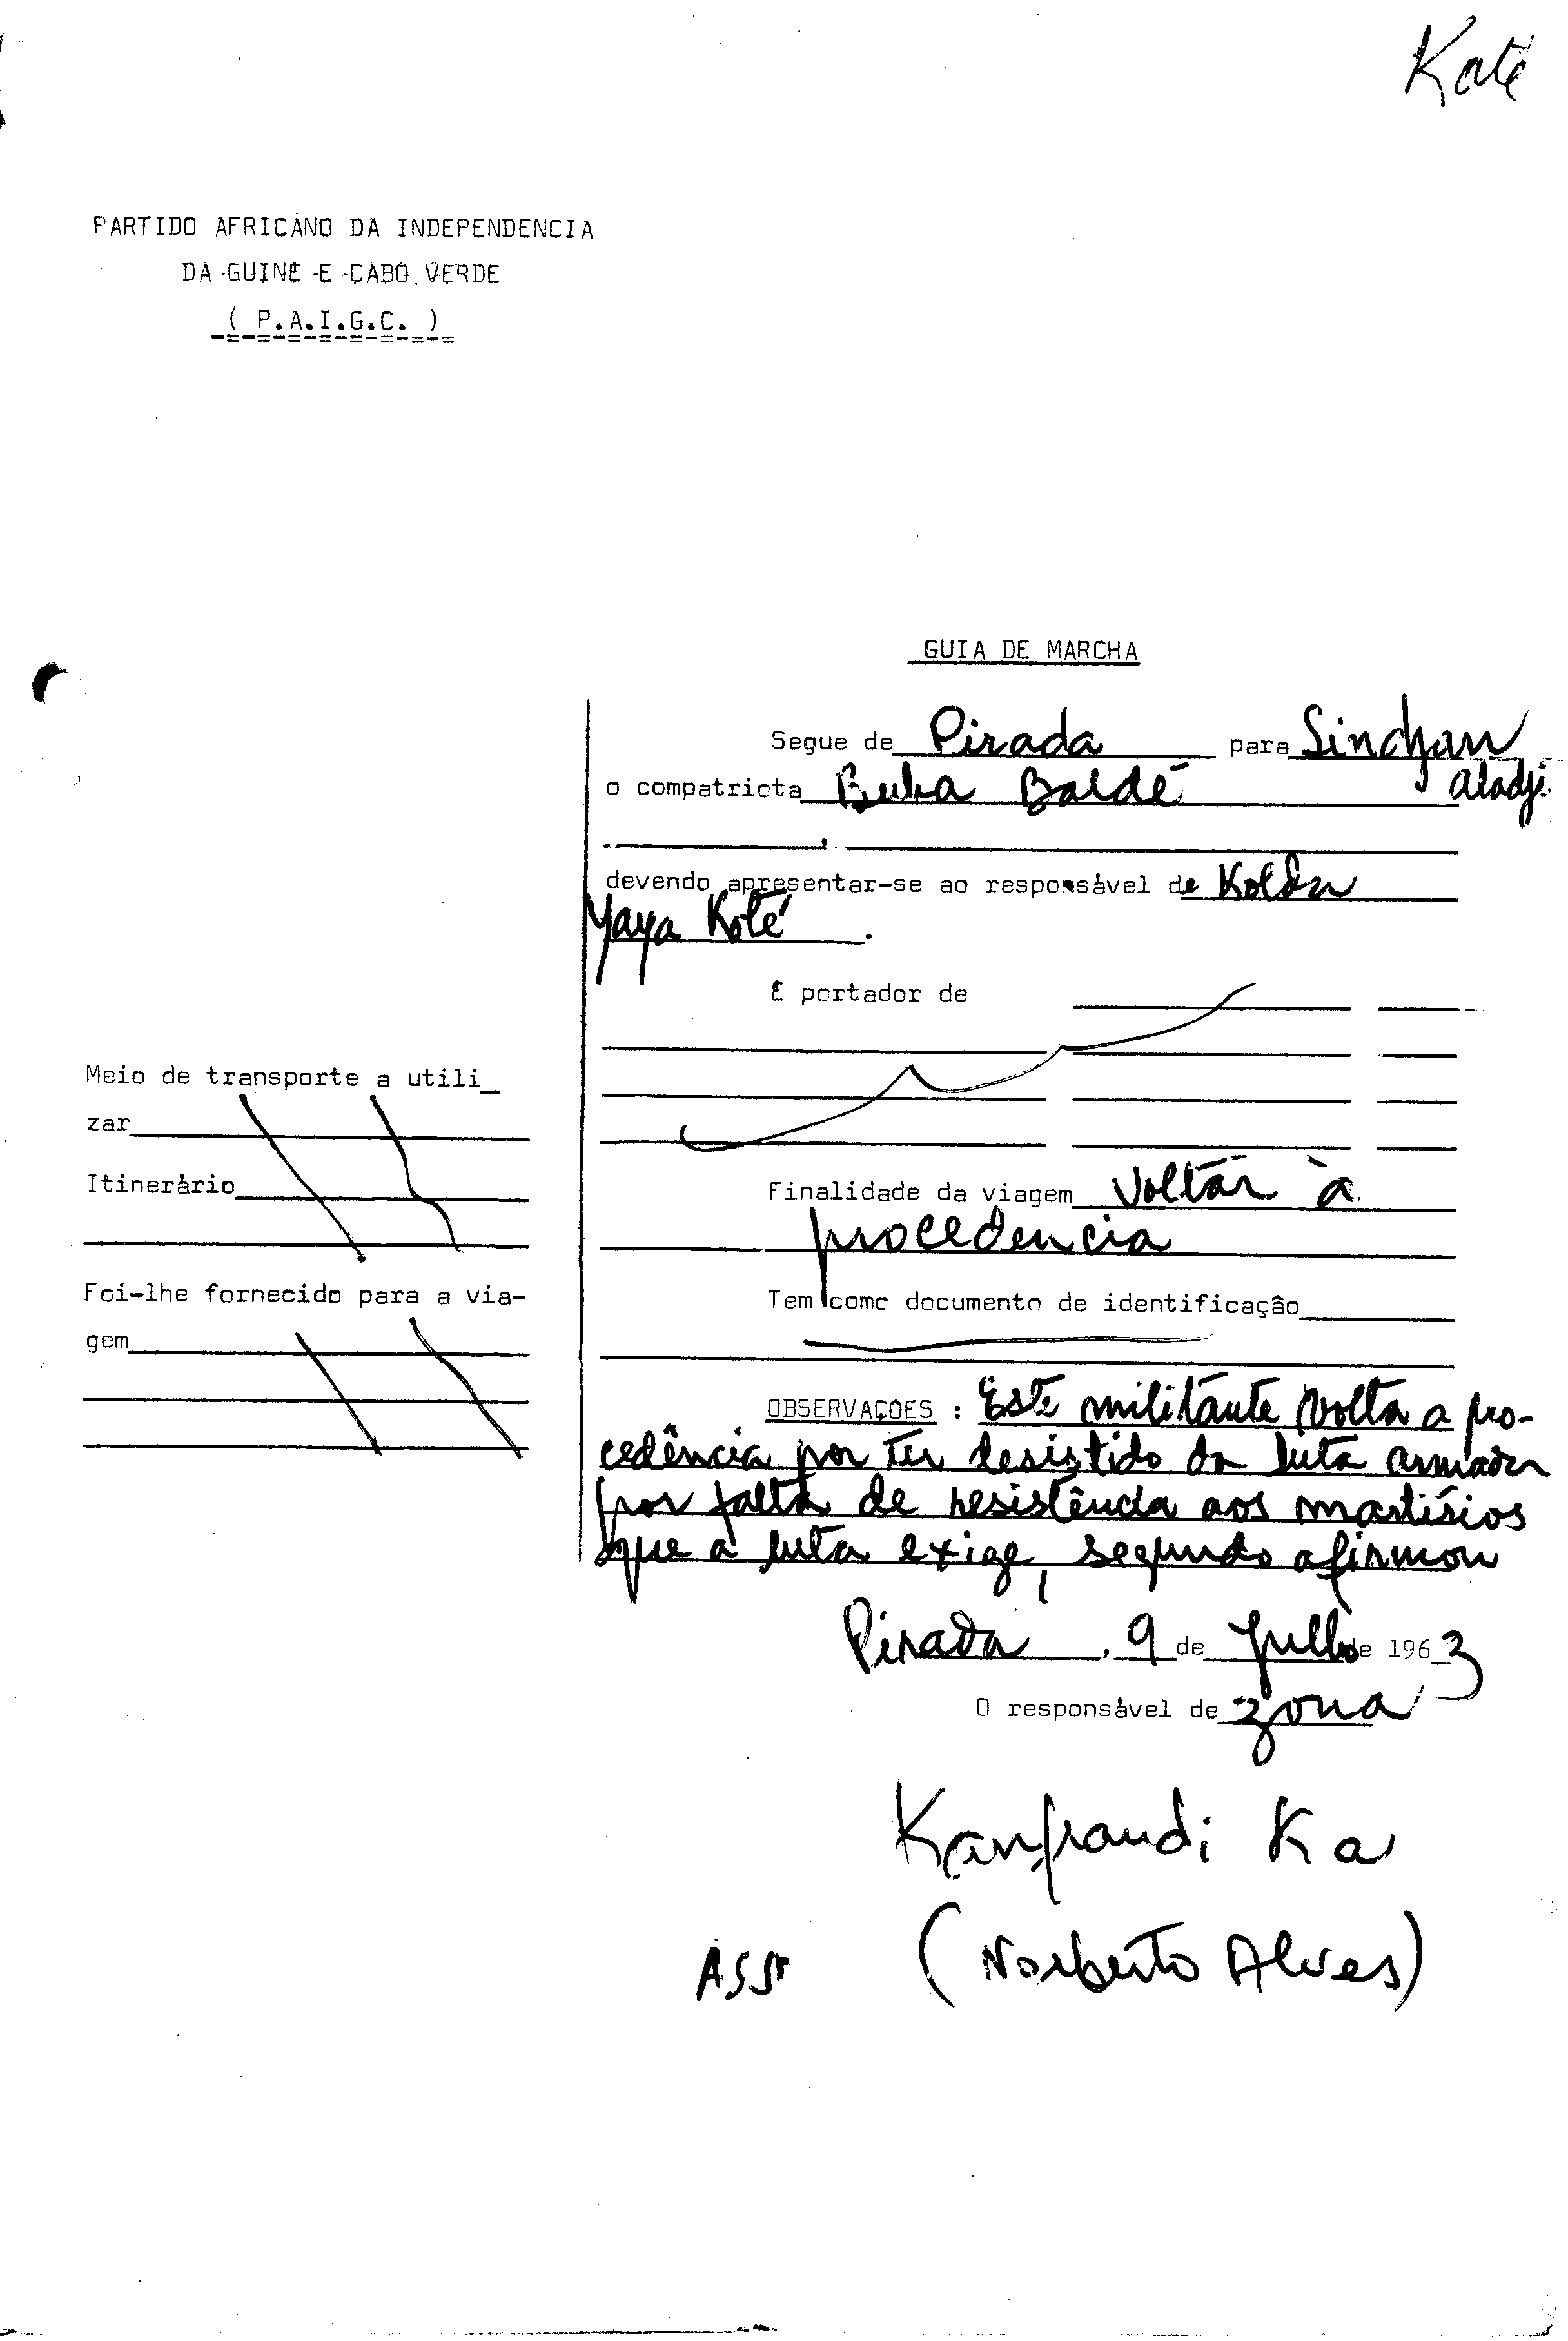 Koté
PARTIDO AFRICANO DA INDEPENDENCIA
DA GUINE E CABO VERDE
( P.A.I.G.C. )
GUIA DE MARCHA
Segue de Pirada para Sinchan
Aladji
o compatriota Buba Baldé
devendo apresentar-se ao responsável de Kolda
Yaya Koté .
É portador de
Meio de transporte a utili_
zar
Itinerário
Finalidade da viagem Voltar à
procedencia
Foi-lhe fornecido para a via-
gem
Tem como documento de identificação
OBSERVAÇOES : Este militante volta a pro-
cedência por ter desistido da luta armada
por falta de resistência aos martírios
que a luta exige, segundo afirmou
Pirada , 9 de Julho de 1963
O responsável de zona
Ka
(Norberto Alves)